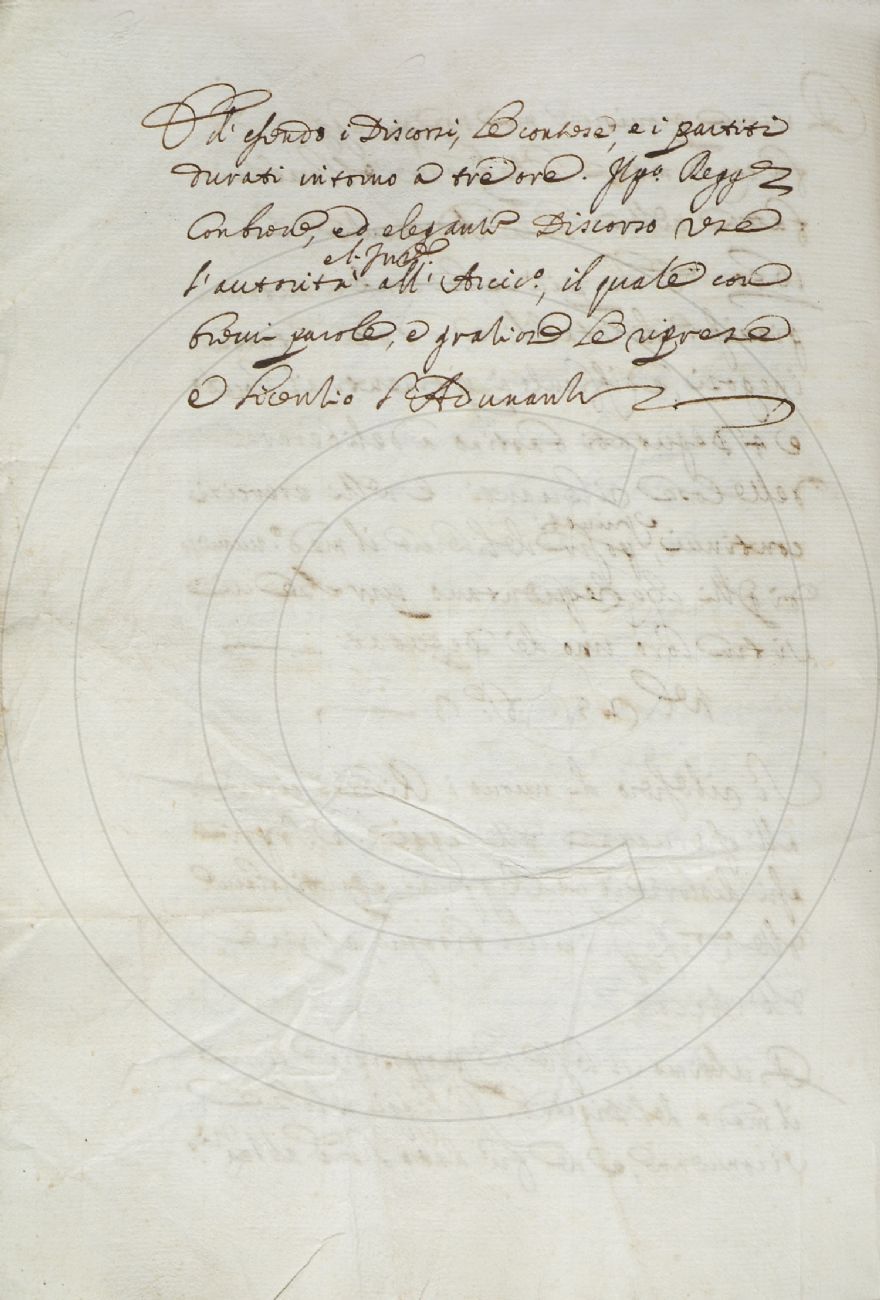 Ed essendo i Discorsi, le contese, e i partiti
durati intorno a tre ore. Il po. Regg.
Con breve, ed elegante Discorso rese
l'autorità all' Arcico., il quale con
brevi parole, e gratiose le riprese
e licentiò l'Adunanti